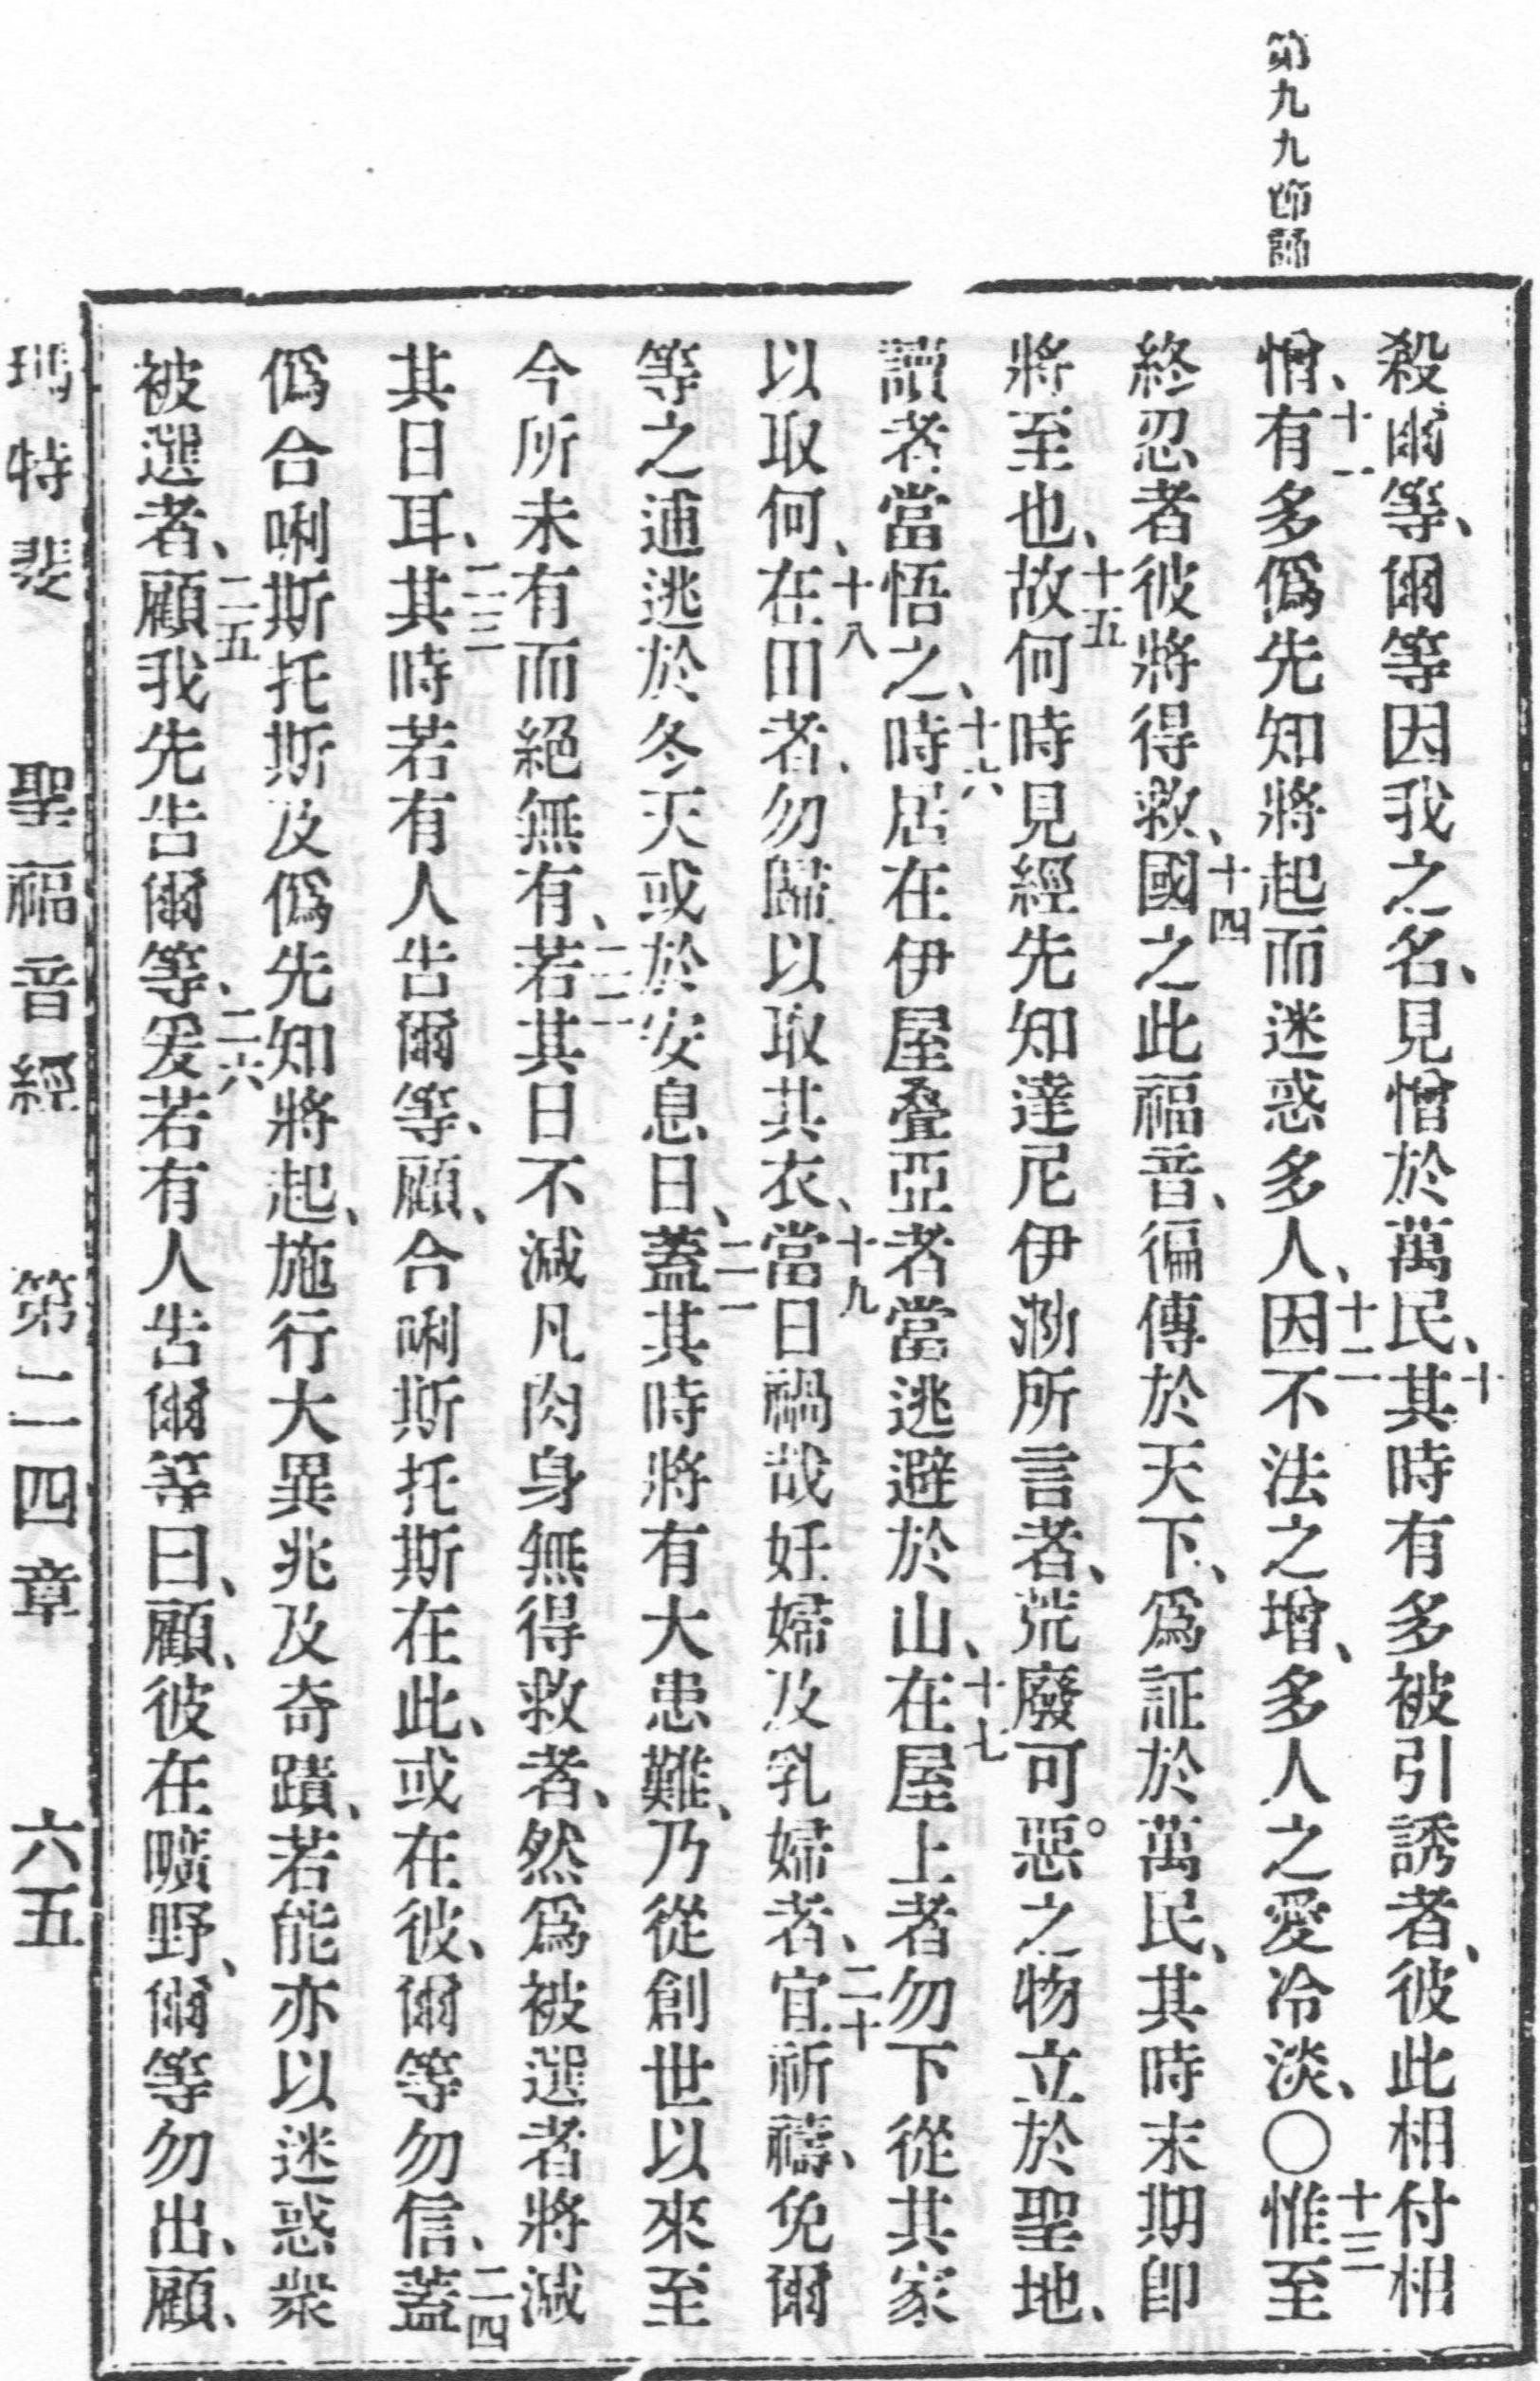 第九九節誦
殺爾等、爾等因我之名、見憎於萬民、十其時有多被引誘者、彼此相付相
憎、十一有多僞先知將起而迷惑多人、十二因不法之增、多人之愛冷淡、〇十三惟至
終忍者彼將得救、十四國之此福音、徧傳於天下、爲証於萬民、其時末期卽
將至也、十五故何時見經先知達尼伊泐所言者、荒廢可惡。之物立於聖地、
讀者當悟之、十六時居在伊屋叠亞者當逃避於山、十七在屋上者勿下從其家
以取何、十八在田者、勿歸以取其衣、十九當日禍哉妊婦及乳婦者、二十宜祈禱、免爾
等之逋逃於冬天或於安息日、二一蓋其時將有大患難、乃從創世以來至
今所未有而絕無有、二二若其日不減凡肉身無得救者、然爲被選者將減
其日耳、二三其時若有人告爾等、顧、合唎斯托斯在此、或在彼、爾等勿信、二四蓋
僞合唎斯托斯及僞先知將起、施行大異兆及奇蹟、若能亦以迷惑衆
被選者、二五顧我先告爾等、二六爰若有人告爾等曰、顧、彼在曠野、爾等勿出、顧、
瑪特斐 聖福音經 第二四章 六五